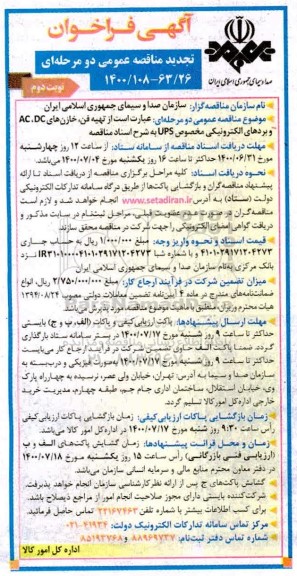 آگهی فراخوان
تجدید مناقصه عمومی دو مرحله‌ای
۱۴۰۰/۱۰۸-۶۳/۲۶
نوبت دوم
صدا و سیمای جمهوری اسلامی ایران
نام سازمان مناقصه‌گزار: سازمان صدا و سیمای جمهوری اسلامی ایران
موضوع مناقصه عمومی دو مرحله‌ای: عبارت است از تهیه فن، خازن‌های AC، DC
و بردهای الکترونیکی مخصوص UPS به شرح اسناد مناقصه
مهلت دریافت اسناد مناقصه از سامانه ستاد: از ساعت ۱۲ روز چهارشنبه
مورخ ۱۴۰۰/۰۶/۳۱ حداکثر تا ساعت ۱۶ روز یکشنبه مورخ ۱۴۰۰/۰۷/۰۴ می‌باشد.
نحوه دریافت اسناد: کلیه مراحل برگزاری مناقصه از دریافت اسناد تا ارائه
پیشنهاد مناقصه‌گران و بازگشایی پاکت‌ها از طریق درگاه سامانه تدارکات الکترونیکی
دولت (ستاد) به آدرس www.setadiran.ir انجام خواهد شد و لازم است
مناقصه‌گران در صورت عدم عضویت قبلی، مراحل ثبت‌نام در سایت مذکور و
دریافت گواهی امضای الکترونیکی را جهت شرکت در مناقصه محقق سازند.
قیمت اسناد و نحوه واریز وجه: مبلغ ۱/۰۰۰/۰۰۰ ریال به حساب جاری
۴۱۰۱۰۲۹۱۷۱۲۰۴۲۷۳ و با شماره شبا IR۳۱۰۱۰۰۰۰۴۱۰۱۰۲۹۱۷۱۲۰۴۲۷۳ نزد
بانک مرکزی به‌نام سازمان صدا و سیمای جمهوری اسلامی ایران
میزان تضمین شرکت در فرآیند ارجاع کار: مبلغ ۲/۷۵۰/۰۰۰/۰۰۰ ریال، انواع
ضمانتنامه‌های مندرج در ماده ۴ آیین‌نامه تضمین معاملات دولتی مصوب ۱۳۹۴/۰۸/۲۴
هیئت محترم وزیران منطبق با ماهیت موضوع مناقصه، مورد پذیرش می‌باشد.
مهلت ارسال پیشنهادها: پاکت ارزیابی کیفی و پاکات (الف، ب و ج)، بایستی
حداکثر تا ساعت ۹ روز شنبه مورخ ۱۴۰۰/۰۷/۱۷ در بستر سامانه ستاد بارگذاری
گردد. ضمناً پاکت الف حاوی تضمین شرکت در فرآیند ارجاع کار می‌بایست
حداکثر تا ساعت ۹ روز شنبه مورخ ۱۴۰۰/۰۷/۱۷ به‌صورت فیزیکی و دربسته به
سازمان صدا و سیما به آدرس: تهران، خیابان ولی عصر، نرسیده به چهارراه پارک
وی، خیابان استقلال، ساختمان اداری جام جم، طبقه چهارم، مدیریت خرید
خارجی اداره کل امور کالا تسلیم گردد.
زمان بازگشایی پاکات ارزیابی کیفی: زمان بازگشایی پاکات ارزیابی کیفی
رأس ساعت ۹:۳۰ روز شنبه مورخ ۱۴۰۰/۰۷/۱۷ در اداره کل امور کالا می‌باشد.
زمان و محل قرائت پیشنهادها: زمان گشایش پاکت‌های الف و ب
(ارزیابی فنی بازرگانی) رأس ساعت ۱۵ روز یکشنبه مورخ ۱۴۰۰/۰۷/۱۸
در دفتر معاون محترم منابع مالی و سرمایه انسانی سازمان می‌باشد.
گشایش پاکت‌های ج پس از ارائه نظر کارشناسی سازمان انجام خواهد پذیرفت.
شرکت‌کننده بایستی دارای مجوز صلاحیت انجام امور از مراجع ذیصلاح باشد.
برای کسب اطلاعات بیشتر با شماره تلفن ۲۲۱۶۷۴۶۳ تماس حاصل فرمائید.
مرکز تماس سامانه تدارکات الکترونیک دولت: ۰۲۱-۴۱۹۳۴
شماره دفتر ثبت‌نام: ۸۸۹۶۹۷۳۷ و ۸۵۱۹۳۷۶۸
اداره کل امور کالا